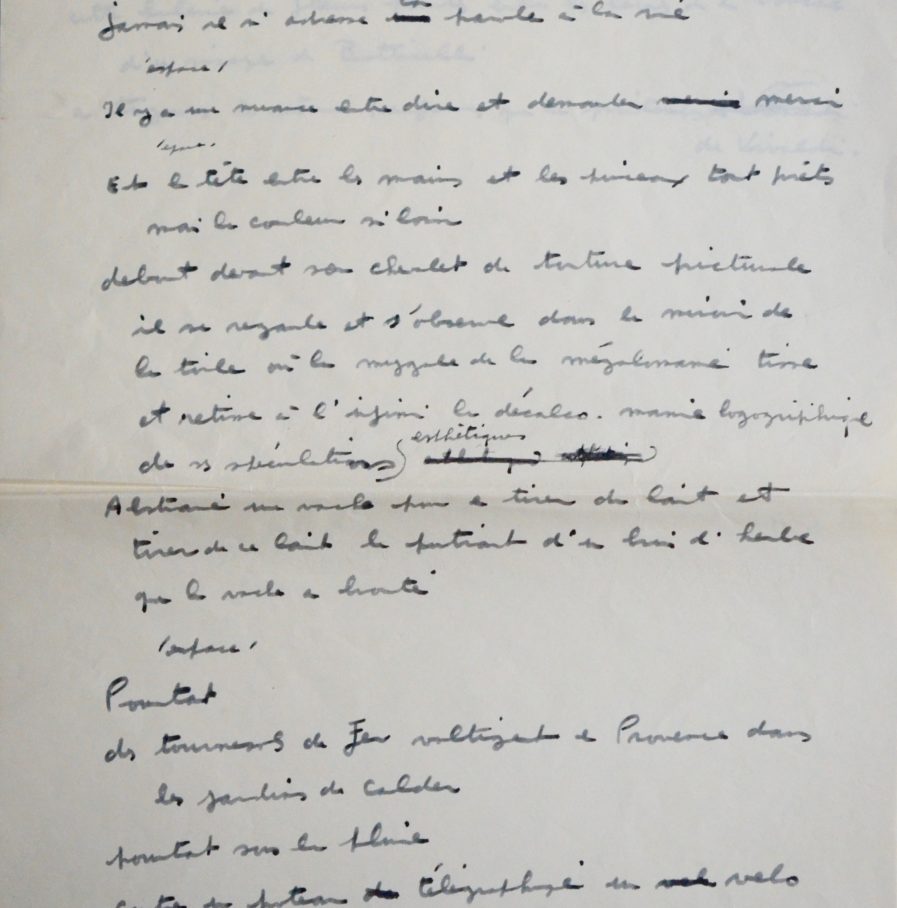 jamais il n'adresse la parole à la vie
(espace)
Il y a une nuance entre dire et demander merci
(espace)
Et la tête entre les mains et les pinceaux tout prêts
mais la couleur si loin
debout devant son chevalet de torture picturale
il se regarde et s'observe dans le miroir de
la toile où la mygale de la mégalomanie tisse
et retisse à l'infini la décalco. manie logogriphique
de ses spéculations esthétiques
Abstraire une vache pour en tirer du lait et
tirer de ce lait le portrait d'un brin d'herbe
que la vache a brouté
(espace)
Pourtant
des tournesols de Fer voltigent en Provence dans
les jardins de Calder
pourtant sous la pluie
contre un poteau télégraphique un vélo